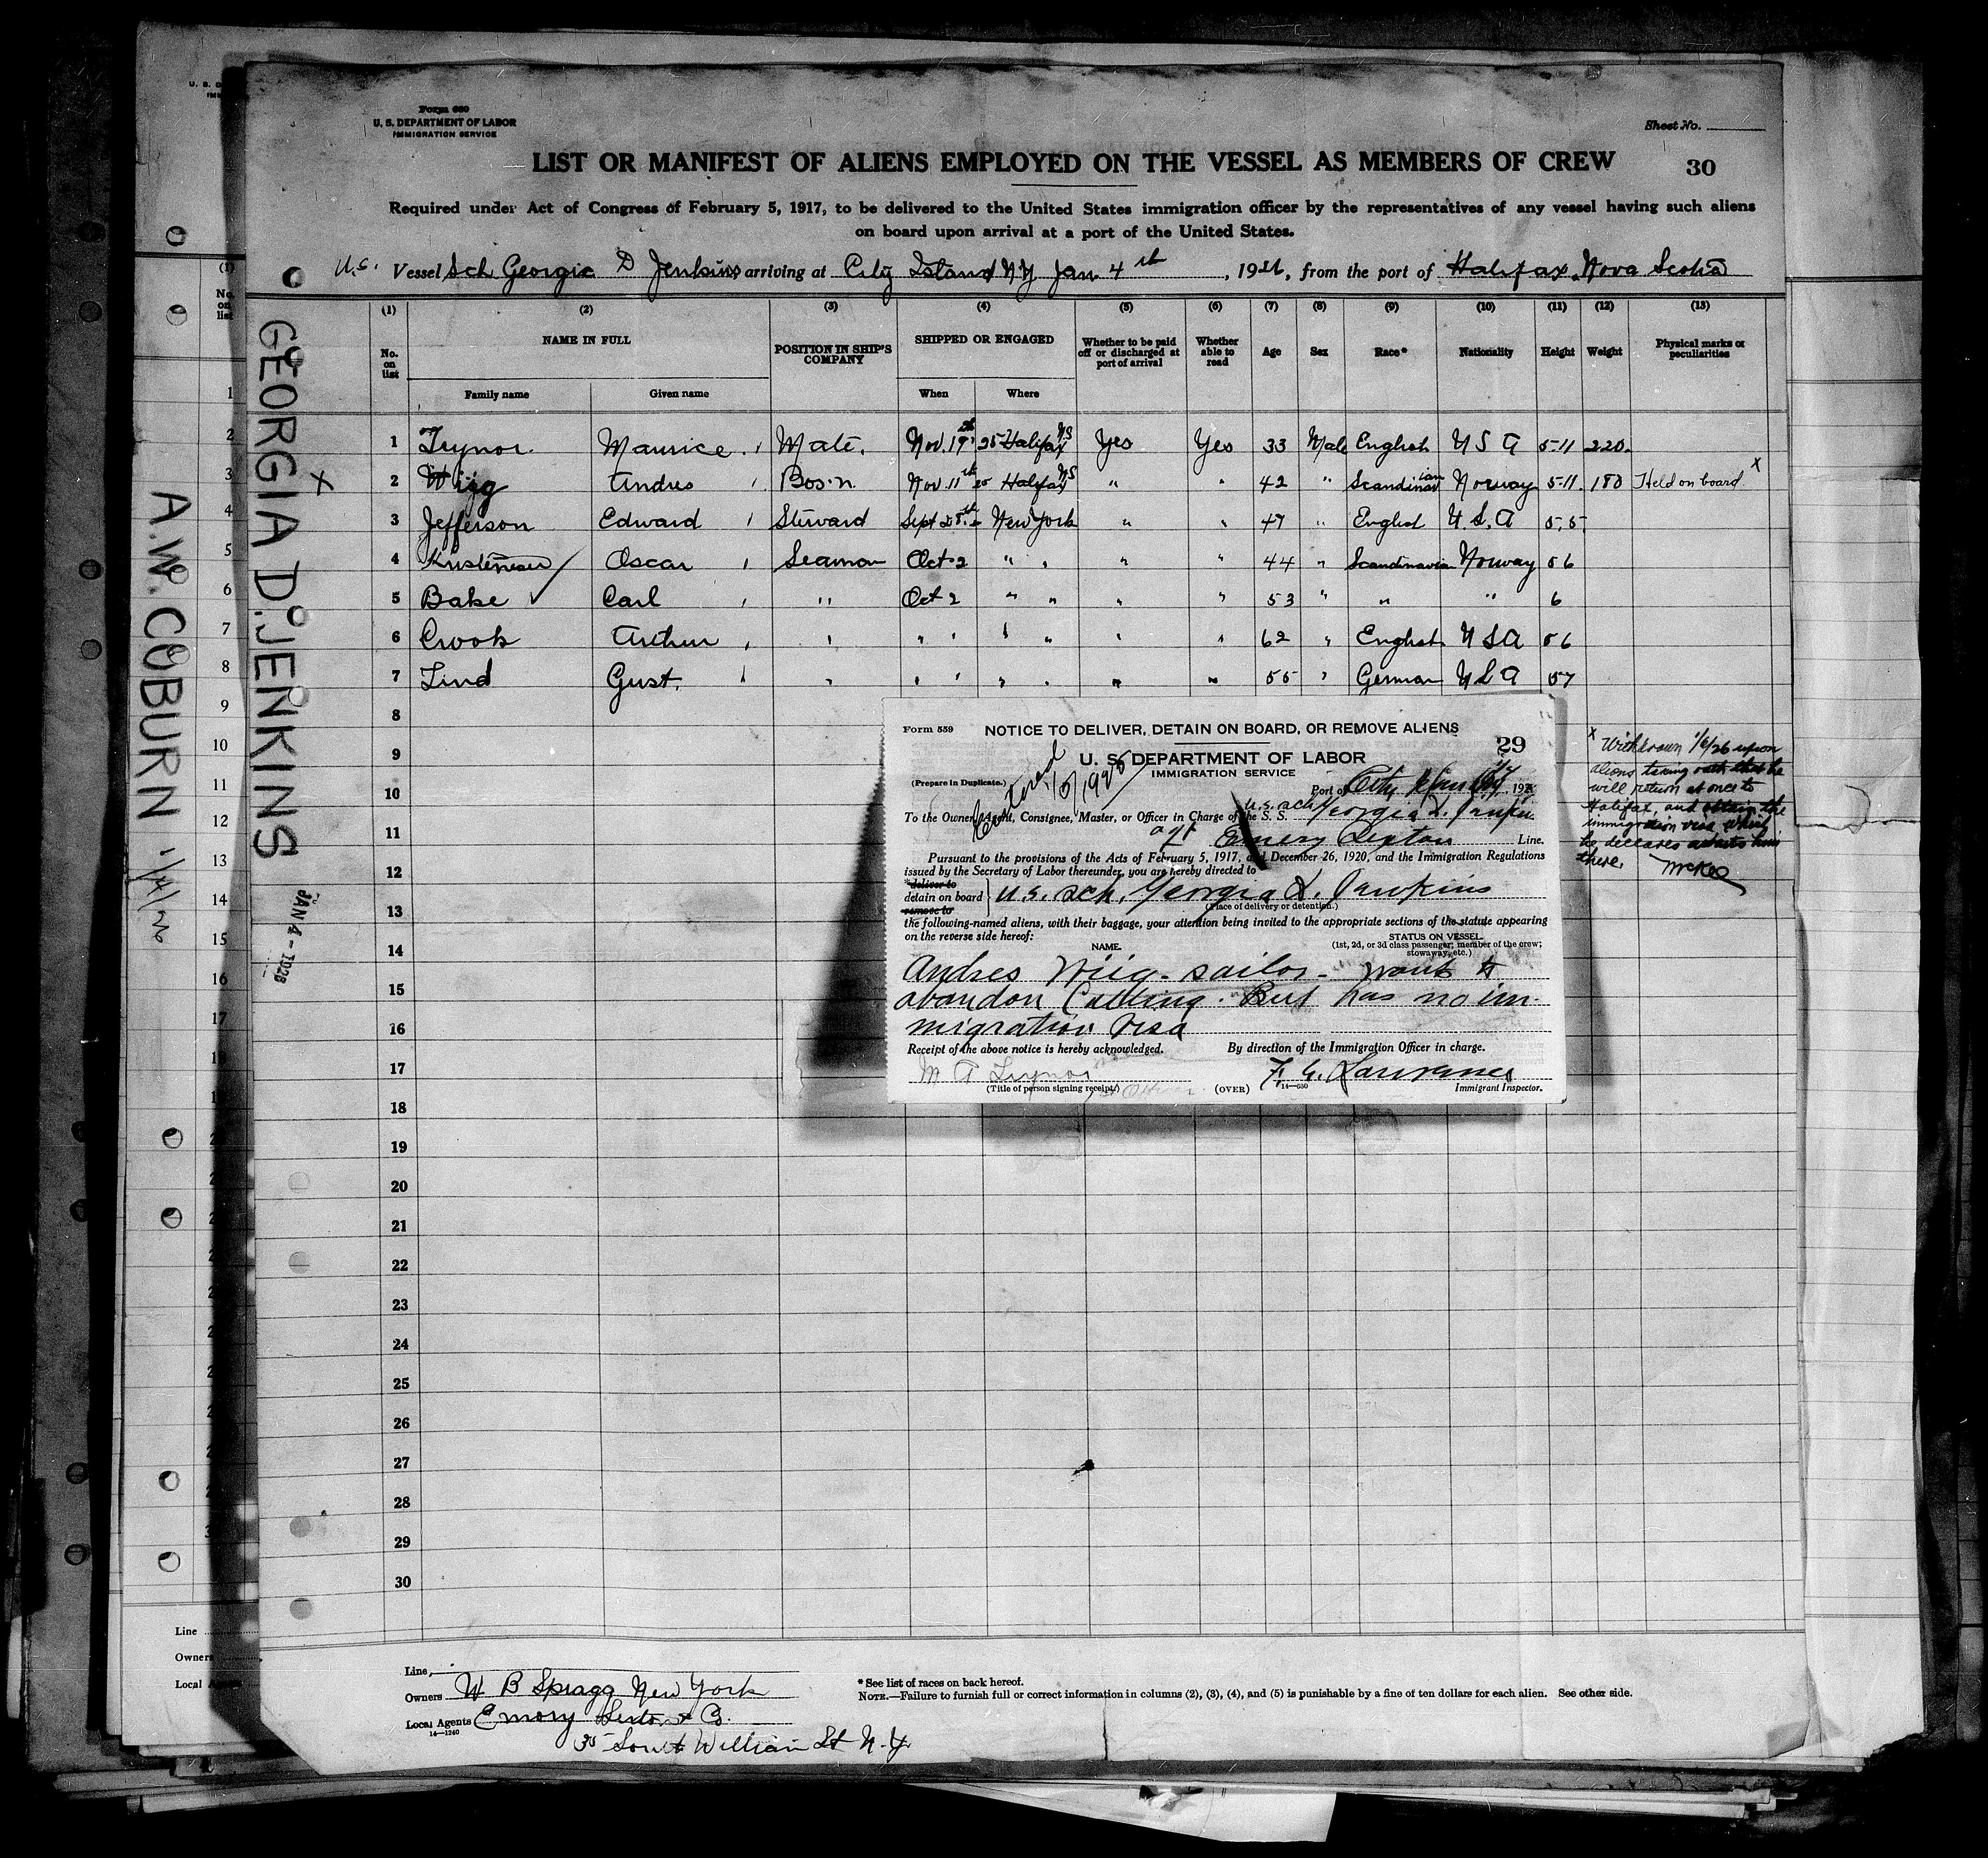 Form 680
U. S. DEPARTMENT OF LABOR
IMMIGRATION SERVICE
Sheet No.
LIST OR MANIFEST OF ALIENS EMPLOYED ON THE VESSEL AS MEMBERS OF CREW
30
Required under Act of Congress of February 5, 1917, to be delivered to the United States immigration officer by the representatives of any vessel having such aliens
on board upon arrival at a port of the United States.
U.S. Vessel Sch Georgia D Jenkins arriving at City Island NY Jan 4th, 19, from the port of Halifax Nova Scotia
(1) (2) (3) (4) (5) (6) (7) (8) (9) (10) (11) (12) (13)
No. on list NAME IN FULL POSITION IN SHIP'S COMPANY SHIPPED OR ENGAGED Whether to be paid off or discharged at port of arrival Whether able to read Age Sex Race* Nationality Height Weight Physical marks or peculiarities
Family name Given name When Where
1 Trynor Maurice Mate. Nov. 19th 25 Halifax NS Yes Yes 33 Male English U S A 5-11 220
x 2 Wiig Andres Bos'n. Nov 11th 25 Halifax NS " " 42 " Scandinavian Norway 5-11 180 Held on board x
3 Jefferson Edward Steward Sept 28th New York " " 47 " English U.S.A 5.5
4 Kristensen Oscar Seaman Oct 2 " " " " 44 " Scandinavian Norway 5 6
5 Bake Carl " Oct 2 " " " " 53 " " " 6
6 Crook Arthur " " " " " " " 62 " English U S A 5 6
7 Lind Gust. " " " " " " " 55 " German U S A 5 7
8
9
10
11
12
13
14
15
16
17
18
19
20
21
22
23
24
25
26
27
28
29
30
x Withdrawn 1/6/26 upon
aliens taking oath that he
will return at once to
Halifax, and obtain the
immigration visa which
he declares awaits him
there. McKee
Form 559 NOTICE TO DELIVER, DETAIN ON BOARD, OR REMOVE ALIENS
29
U. S. DEPARTMENT OF LABOR
IMMIGRATION SERVICE
(Prepare in Duplicate.)
Port of City Island, 192
To the Owner, Agent, Consignee, Master, or Officer in Charge of the S. S. U.S. sch Georgia D. Jenkins
Emery Sexton Line.
Pursuant to the provisions of the Acts of February 5, 1917, and December 26, 1920, and the Immigration Regulations
issued by the Secretary of Labor thereunder, you are hereby directed to
*deliver to
detain on board U.S. sch. Georgia D. Jenkins
remove to
(Place of delivery or detention.)
the following-named aliens, with their baggage, your attention being invited to the appropriate sections of the statute appearing
on the reverse side hereof:
NAME.
STATUS ON VESSEL
(1st, 2d, or 3d class passenger; member of the crew; stowaway, etc.)
Andres Wiig - sailor - want to
abandon Calling. But has no im-
migration visa
Receipt of the above notice is hereby acknowledged. By direction of the Immigration Officer in charge.
M A Trynor F. G. Lawrance
(Title of person signing receipt.) (OVER) 14—650 Immigrant Inspector.
GEORGIA D. JENKINS
JAN 4 - 1926
A.W. COBURN
Line
Owners W B Spragg New York
Local Agents Emory Sexton & Co.
14—1240
35 South William St N.Y
* See list of races on back hereof.
NOTE.—Failure to furnish full or correct information in columns (2), (3), (4), and (5) is punishable by a fine of ten dollars for each alien. See other side.
(1)
No. on list
1
2
3
4
5
6
7
8
9
10
11
12
13
14
15
16
17
Line
Owners
Local